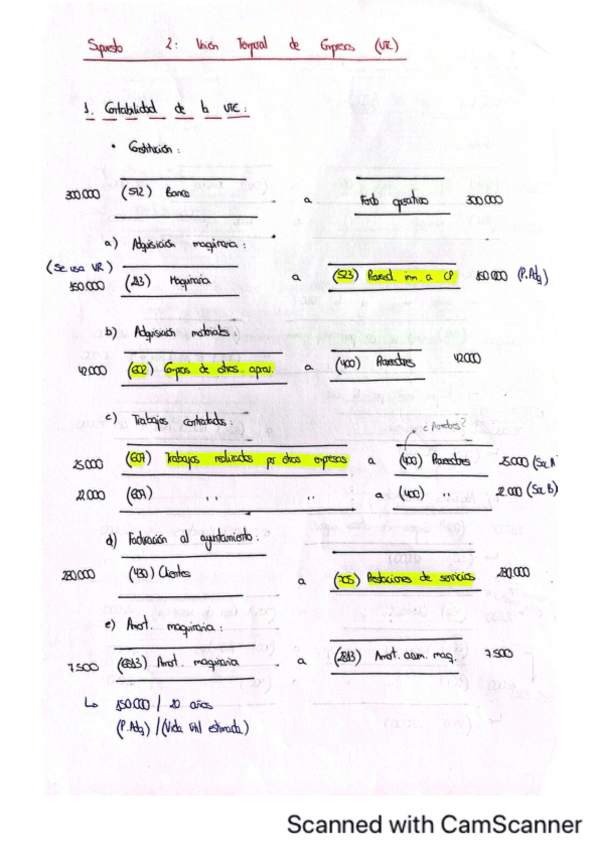 Supuesto 2: Unión Temporal de Empresas (UTE)
1. Contabilidad de la UTE:
• Constitución:
300000 (572) Banco a Fondo operativo 300000
a) Adquisición maquinaria:
(Se usa VR)
150000 (213) Maquinaria a (523) Proved. inm a CP 150000 (P.Adq)
b) Adquisición materiales:
42000 (602) Compras de otros aprov. a (400) Proveedores 42000
c) Trabajos contratados:
25000 (607) Trabajos realizados por otras empresas a (400) Proveedores 25000 (Soc A
22000 (607) " " a (400) " 22000 (Soc B)
d) Facturación al ayuntamiento:
280000 (430) Clientes a (705) Prestaciones de servicios 280000
e) Amort. maquinaria:
7500 (6813) Amort. maquinaria a (2813) Amort. acum. maq. 7500
↳ 150000 / 20 años
(P.Adq) / (Vida útil estimada)
Scanned with CamScanner